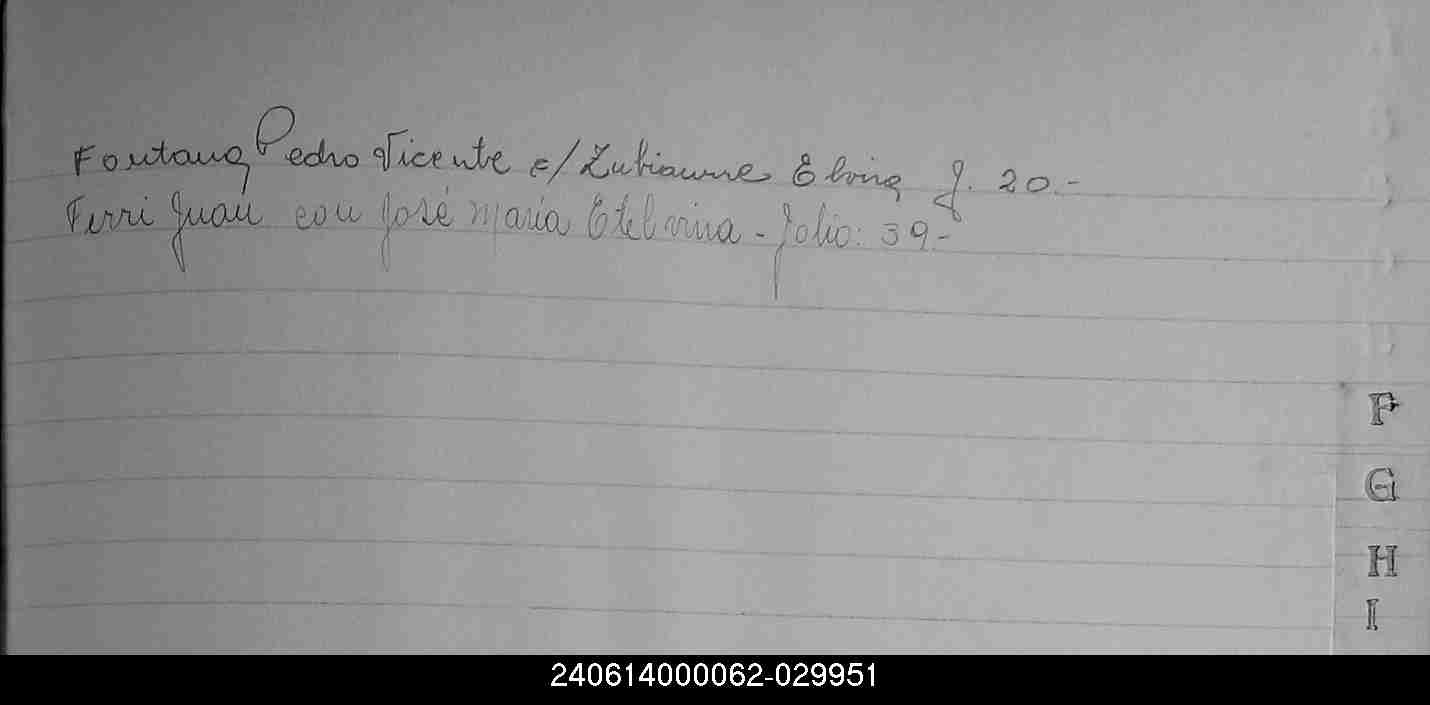 Fontana Pedro Vicente c/ Zubiaurre Elvira f. 20.-
Ferri Juan con José María Etelvina - folio: 39-
F
G
H
I
240614000062-029951